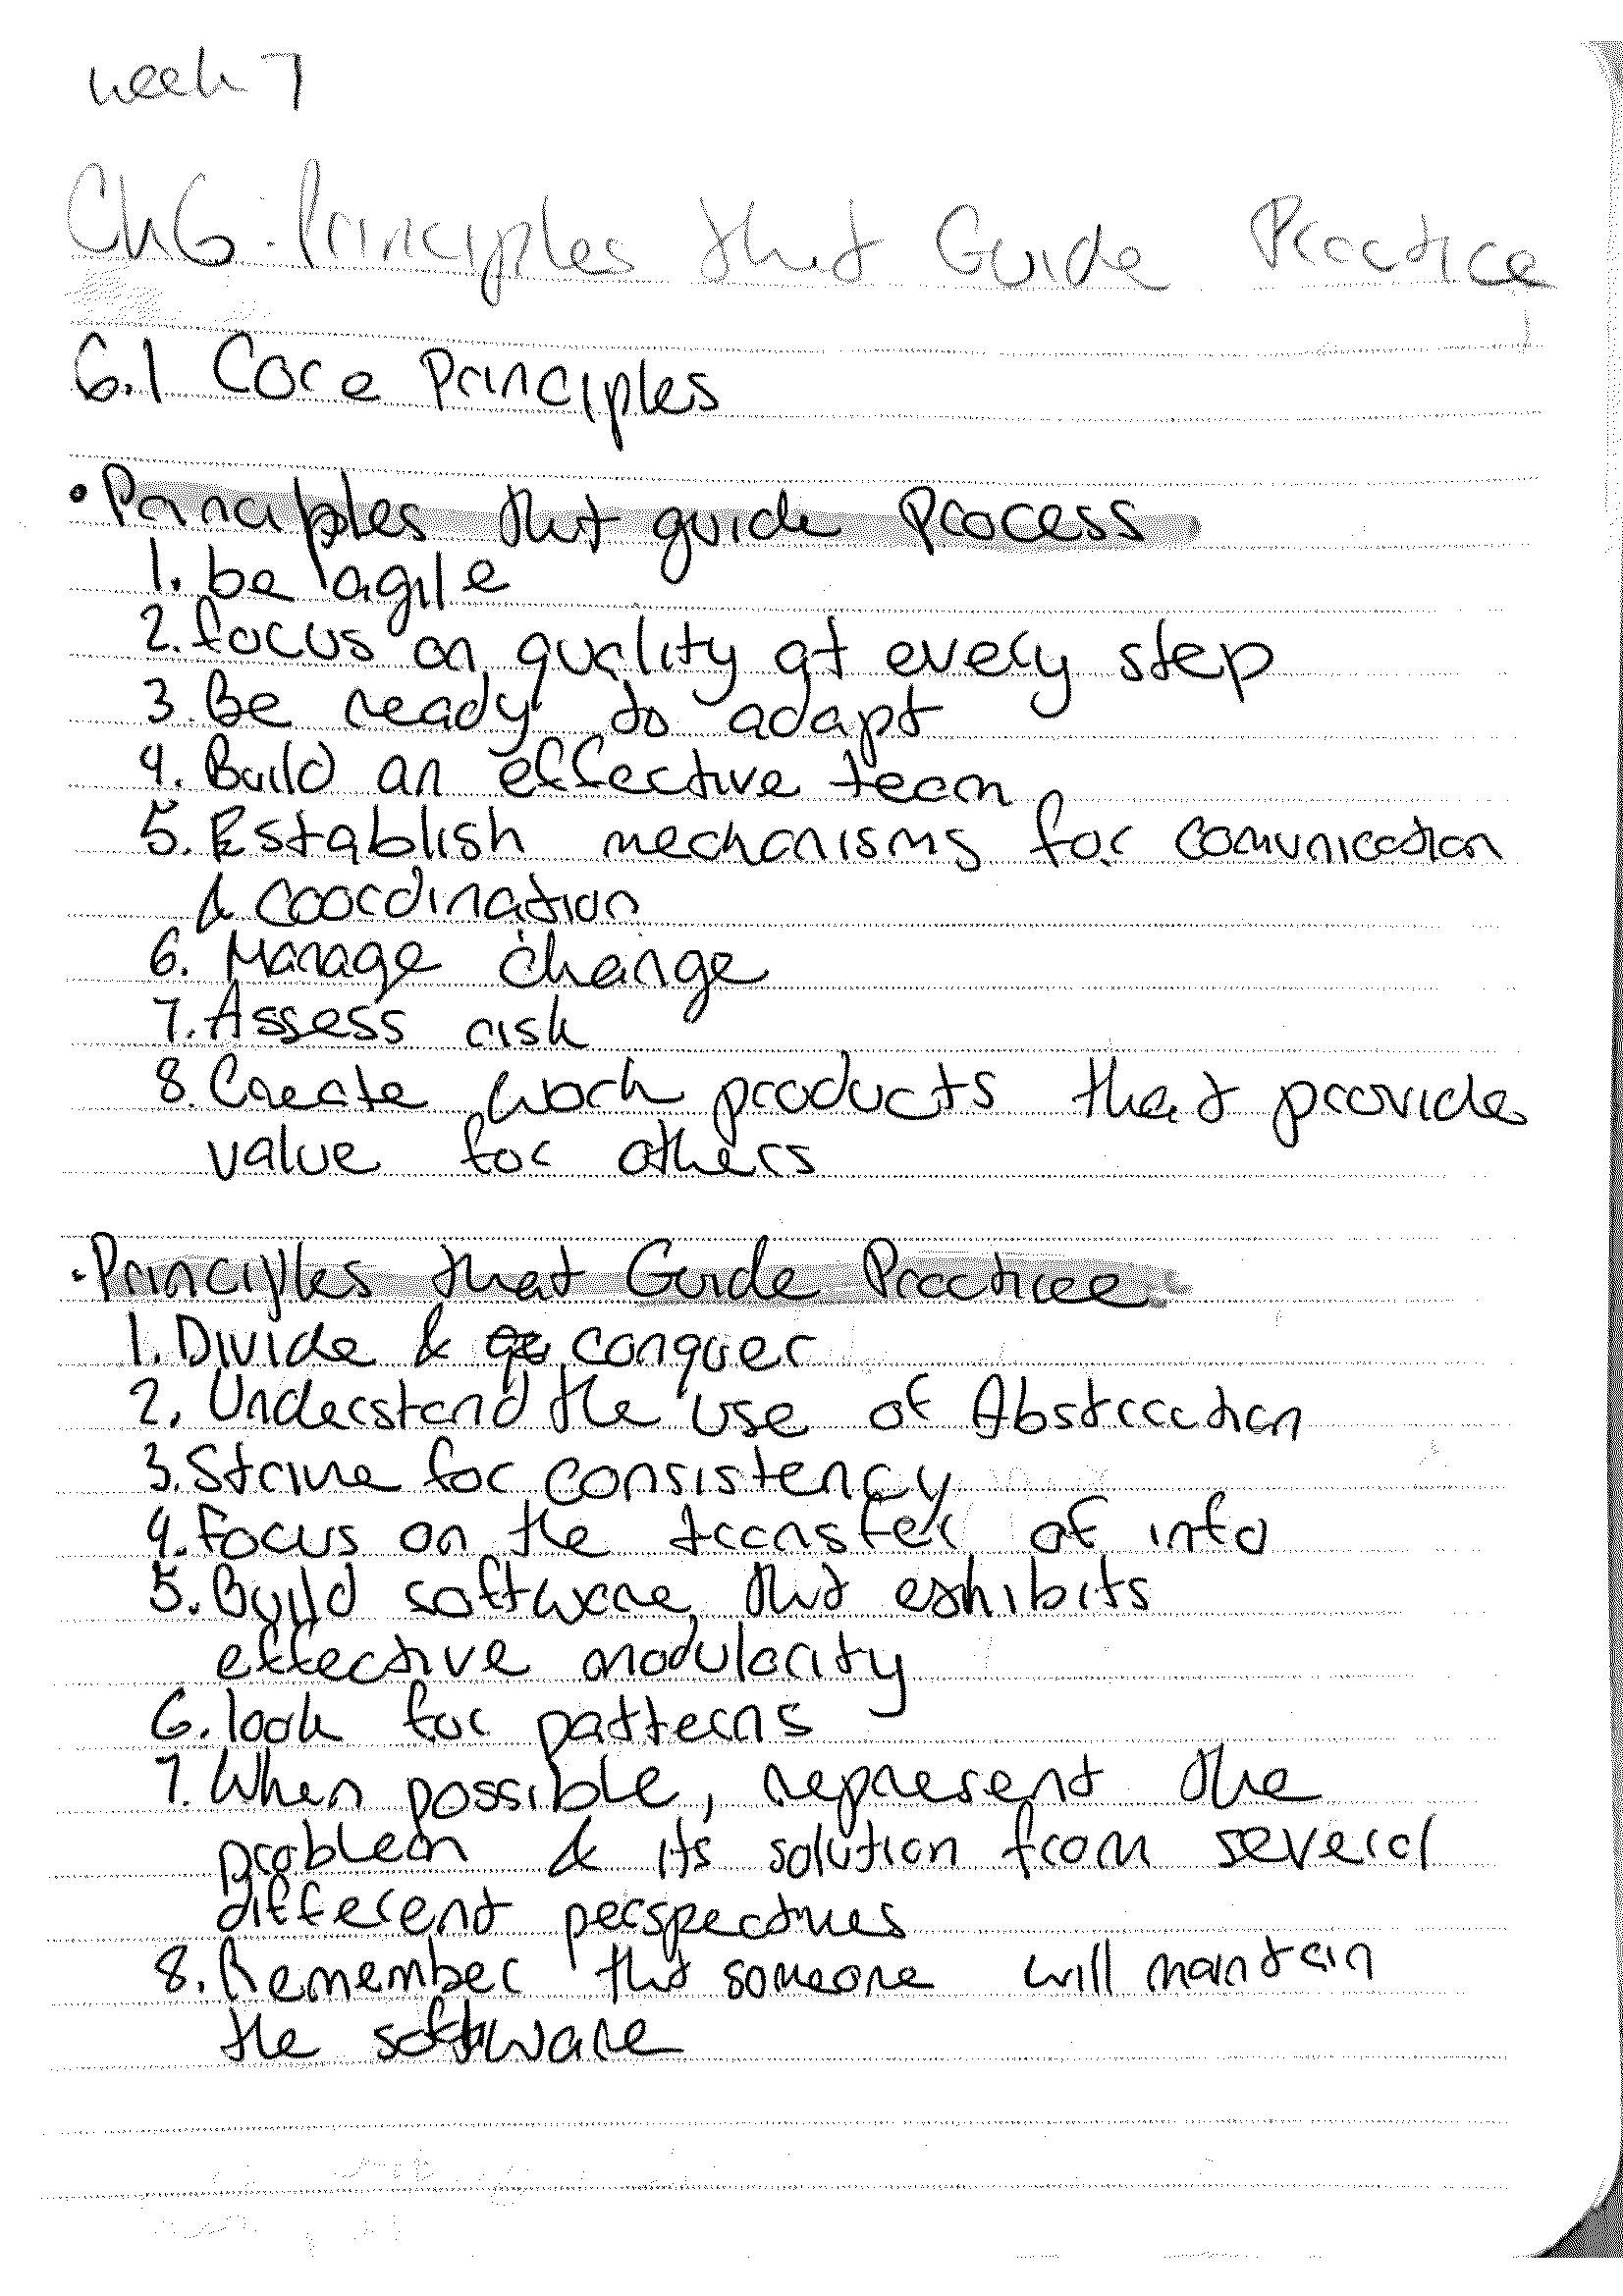 week 7
Ch6: Principles that Guide Practice
6.1 Core Principles
• Principles that guide Process
1. be agile
2. focus on quality at every step
3. Be ready to adapt
4. Build an effective team
5. Establish mechanisms for comunication
& coordination
6. Manage change
7. Assess risk
8. Create work products that provide
value for others
• Principles that Guide Practice
1. Divide & conquer
2. Understand the use of Abstraction
3. Strive for consistency
4. Focus on the transfer of info
5. Build software that exhibits
effective modularity
6. look for patterns
7. When possible, represent the
problem & its solution from several
different perspectives
8. Remember that someone will maintain
the software